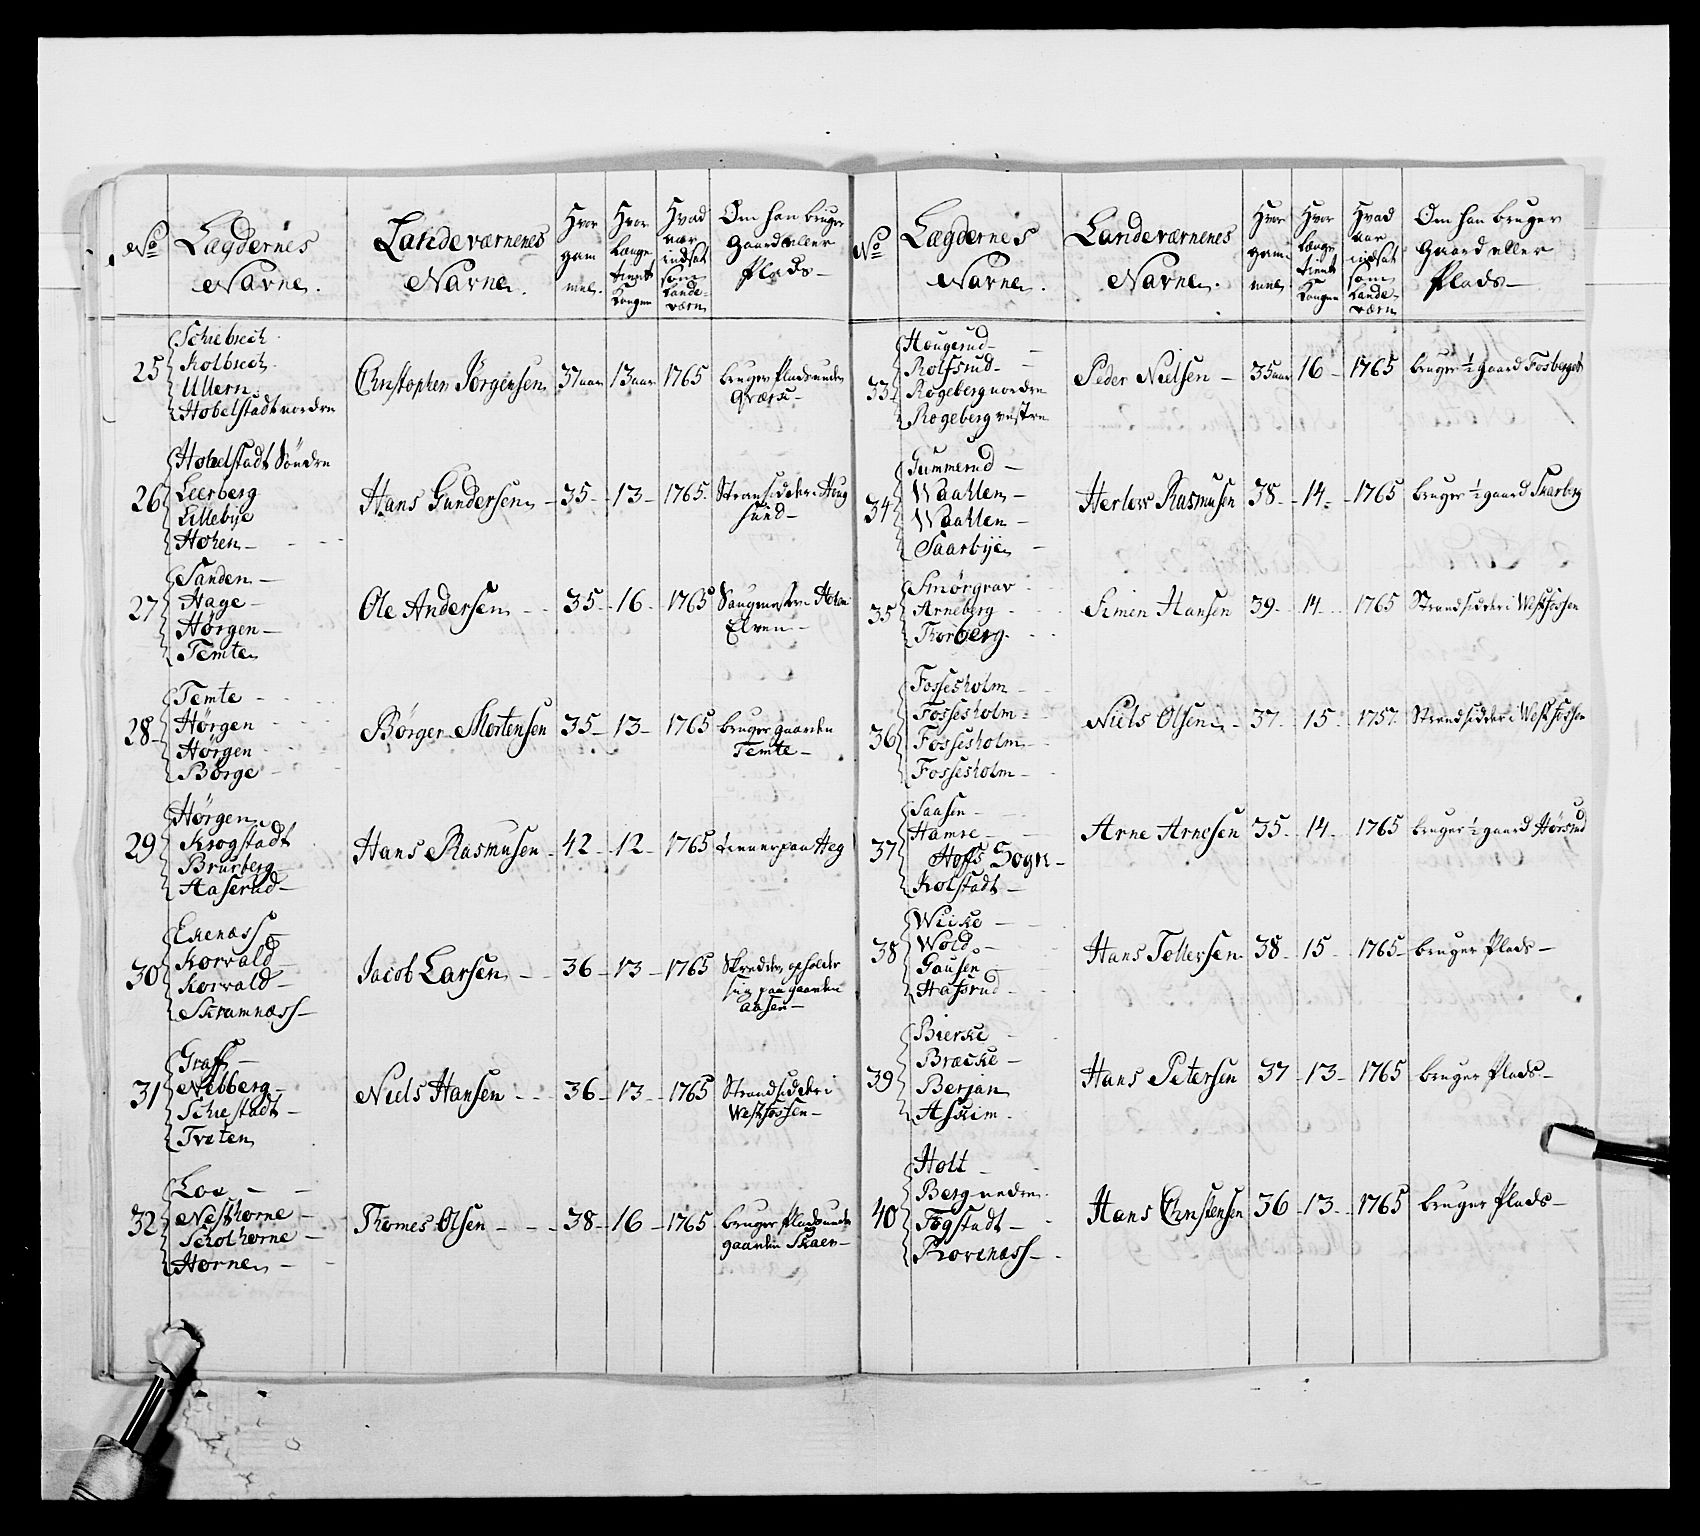 No
Lægdernes
Navne.
Landeværnenes
Navne.
Hvor
gam
mel.
Hvor
længe
tient
Kongen
Hvad
aar
indsat
som
Lande-
værn
Om han bruger
Gaard eller
Plads—
25
Schiebrech
Kolbrech
Ullern
Hobelstadt nordre
Christopher Jørgensen
37 aar
13 aar
1765
bruger Plads under
26
Hobelstadt Söndre
Leerberg
Lillebye
Hohen—
Hans Gundersen—
35—
13—
1765.
Strandsidder i Houg
sund—
27
Sanden—
Hage—
Hørgen—
Temte
Ole Andersen
35—
16—
1765
Saugmester i Hohen
Elven—
28
Temte—
Hørgen
Hørgen
Börge—
Börger Mortensen
35—
13—
1765
bruger gaarden
Temte—
29
Hørgen
Krogstadt
Brurberg
Aaserud—
Hans Rasmusen
42—
12—
1765
tienner paa Heg
30
Ekenæss—
Korvald—
Korvald—
Skramnæss—
Jacob Larsen—
36—
13—
1765
Skredder, opholder
sig paa gaarden
Aasen—
31
Graff—
Nebberg—
Schiestadt—
Tveten
Niels Hansen
36—
13—
1765
Strandsidder i
Westfossen—
32
Loe—
Nesthorne—
Schothorne—
Horne—
Thomes Olsen—
38—
16—
1765
bruger Plads under
gaarden Skaer—
No
Lægdernes
Navne.
Landeværnenes
Navne.
Hvor
gam
mel
Hvor
længe
tient
Kongen
Hvad
aar
indsat
som
Lande-
værn
Om han bruger
Gaard eller
Plads—
33
Hougerud—
Rolfsrud—
Rogeberg nordre
Rogeberg vestre
Peder Nielsen—
35 aar
16—
1765
bruger ½ gaard Fosberget
34
Gummerud—
Waahlen—
Waahlen—
Saarbye
Herlow Rasmusen
38—
14—
1765
bruger ½ gaard Skarberg
35
Smörgrav
Arneberg
Thorberg
Simen Hansen
39—
14—
1765
Strandsidder i Westfossen
36
Fossesholm—
Fossesholm—
Fossesholm—
Fossesholm—
Niels Olsen
37—
15—
1757.
Strandsidder i Westfossen
37
Saasen—
Hamre—
Hoffs Sogn—
Kolstadt—
Arne Arnesen
35—
14—
1765
bruger ½ gaard Hörsrud
38
Wicke
Wold—
Gausen
Hassrud
Hans Tollersen
38—
15—
1765—
bruger Plads—
39
Bierke
Bræcke—
Berjan
Askim.
Hans Petersen
37
13—
1765
bruger Plads—
40
Holt
Berg nedre
Fogstadt—
Rovenæss—
Hans Christensen
36
13—
1765
bruger Plads—